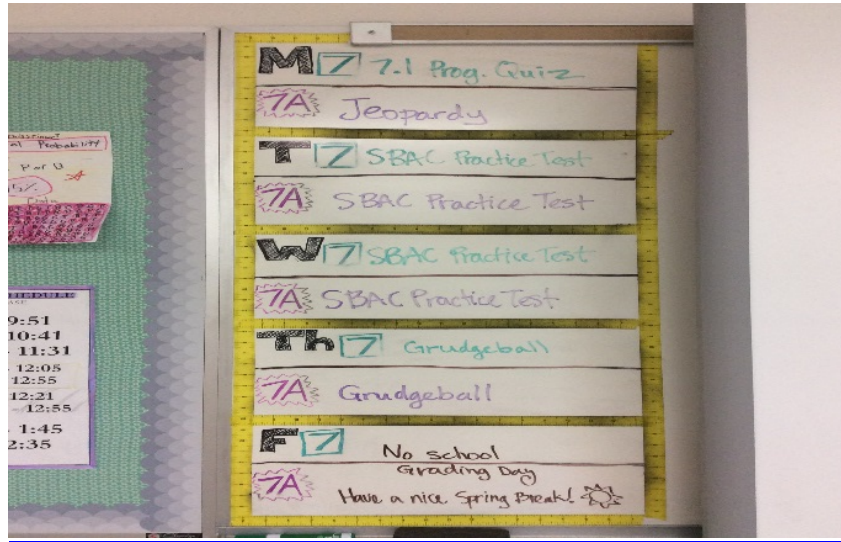 al Probability
P or U
5%
Data
HEDULE
9:51
10:41
- 11:31
- 12:05
12:55
12:21
- 12:55
- 1:45
2:35
M 7 7.1 Prog. Quiz
7A Jeopardy
T 7 SBAC Practice Test
7A SBAC Practice Test
W 7 SBAC Practice Test
7A SBAC Practice Test
Th 7 Grudgeball
7A Grudgeball
F 7 No school
Grading Day
7A Have a nice Spring Break!